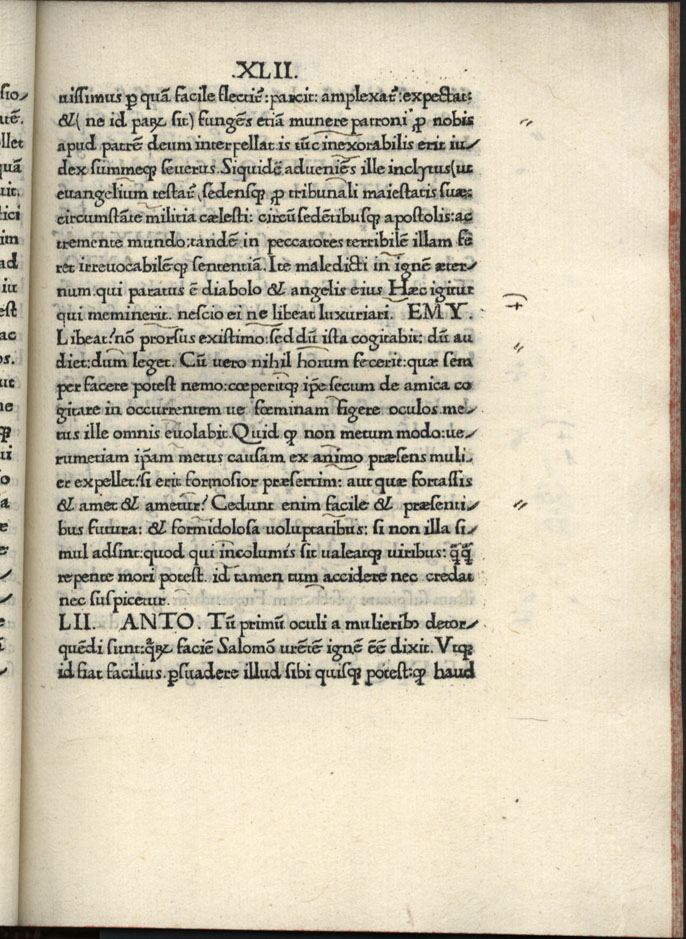 .XLII.
sio
uissimus ꝑ quã facile flectiẽ: parcit: amplexat̃: expectat:
&( ne id parꝝ sit) fungẽs etiã munere patroni ꝓ nobis
apud patrẽ deum interpellat. is tũc inexorabilis erit iu⸗
dex summeqꝫ seuerus. Siquidẽ adueniẽs ille inclytus(ut
euangelium testat̃ (sedensqꝫ ꝓ tribunali maiestatis suæ:
circumstãte militia cælesti: circũsedẽtibusqꝫ apostolis: ac
tremente mundo: tandẽ in peccatores terribilẽ illam fe
ret irreuocabilẽqꝫ sententiã. Ite maledicti in ignẽ æter⸗
num. qui paratus ẽ diabolo & angelis eius Hæc igitur
qui meminerit. nescio ei ne libeat luxuriari. EMY.
Libeat? nõ prorsus existimo: sed dũ ista cogitabit: dũ au
diet: dum leget. Cũ uero nihil horum fecerit: quæ sem
per facere potest nemo: cœperitqꝫ ip̃e secum de amica co
gitare in occurrentem ue fœminam figere oculos. me⸗
tus ille omnis euolabit. Quid qꝫ non metum modo: ue⸗
rumetiam ip̃am metus causam ex animo præsens muli⸗
er expellet? si erit formosior præsertim: aut quæ fortassis
& amet & ametur? Cedunt enim facile & præsenti⸗
bus futura: & formidolosa uoluptatibus: si non illa si⸗
mul adsint: quod qui incolumis sit ualeatqꝫ uiribus: q̃q̃
repente mori potest. id tamen tum accidere nec credat
nec suspicetur.
LII. ANTO. Tũ primũ oculi a mulieribꝰ detor⸗
quẽdi sunt: q̃ꝝ faciẽ Salomõ urẽtẽ ignẽ ẽẽ dixit. Vtqꝫ
id fiat facilius. ꝑsuadere illud sibi quisqꝫ potest: qꝫ haud